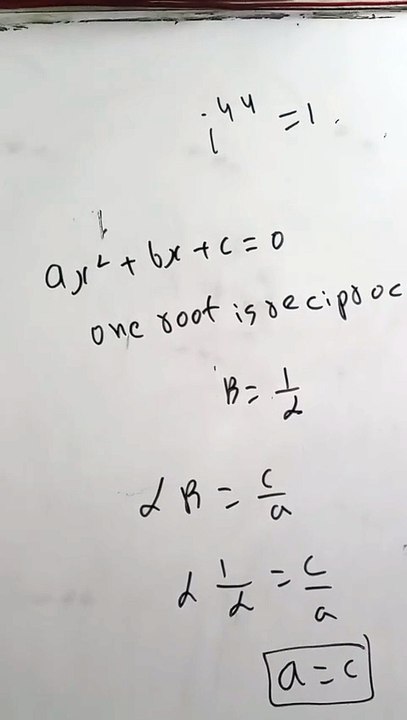 i⁴⁴ = 1.
ax² + bx + c = 0
one root is reciproc
β = 1/α
αβ = c/a
α 1/α = c/a
a = c